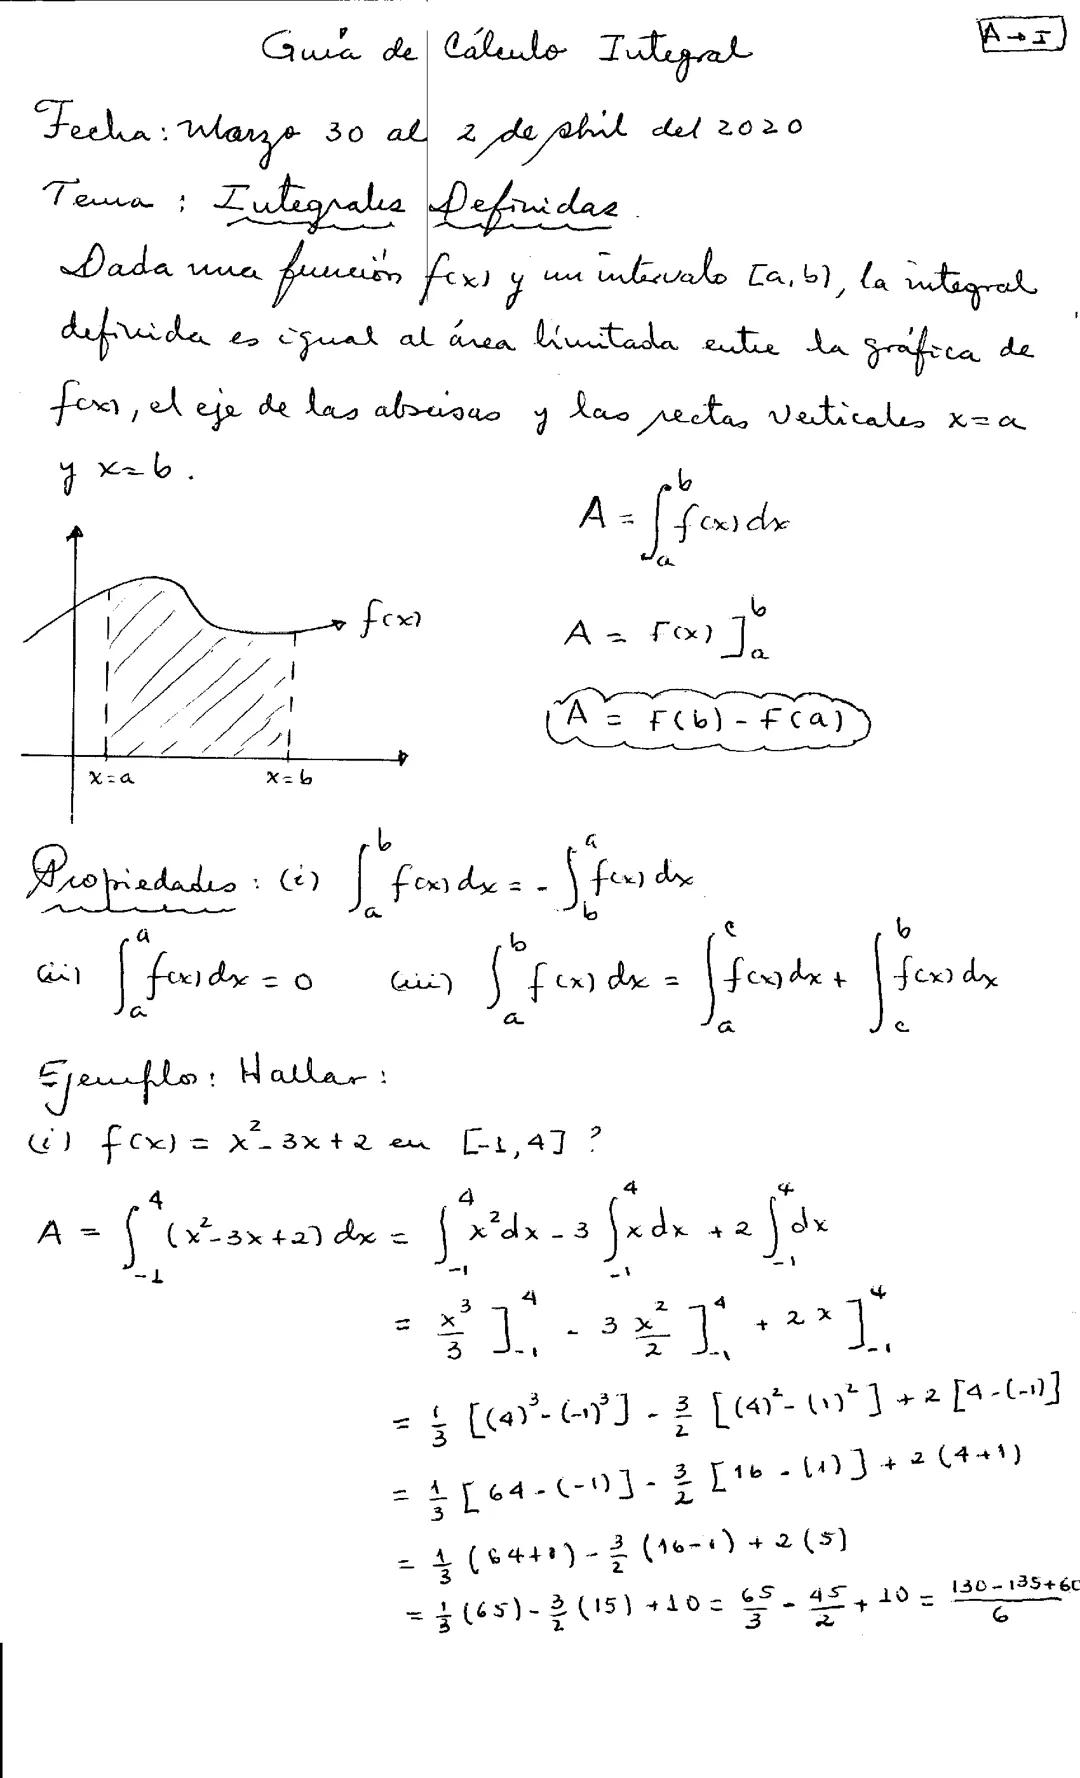 Guía de Cálculo Integral
A→I
Fecha: Marzo 30 al 2 de Abril del 2020
Tema: Integrales Definidas.
Dada una función f(x) y un intervalo [a,b], la integral
definida es igual al área limitada entre la gráfica de
f(x), el eje de las abscisas y las rectas verticales x=a
y x=b.
A = ∫_a^b f(x) dx
f(x)
A = F(x) ]_a^b
A = F(b) - F(a)
x=a x=b
Propiedades: (i) ∫_a^b f(x) dx = - ∫_b^a f(x) dx
(ii) ∫_a^a f(x) dx = 0 (iii) ∫_a^b f(x) dx = ∫_a^c f(x) dx + ∫_c^b f(x) dx
Ejemplos: Hallar:
(i) f(x) = x² - 3x + 2 en [-1,4] ?
A = ∫_-1^4 (x² - 3x + 2) dx = ∫_-1^4 x² dx - 3 ∫_-1^4 x dx + 2 ∫_-1^4 dx
= x³/3 ]_-1^4 - 3 x²/2 ]_-1^4 + 2x ]_-1^4
= 1/3 [(4)³ - (-1)³] - 3/2 [(4)² - (1)²] + 2 [4 - (-1)]
= 1/3 [64 - (-1)] - 3/2 [16 - (1)] + 2 (4+1)
= 1/3 (64+1) - 3/2 (16-1) + 2 (5)
= 1/3 (65) - 3/2 (15) + 10 = 65/3 - 45/2 + 10 = 130-135+60/6